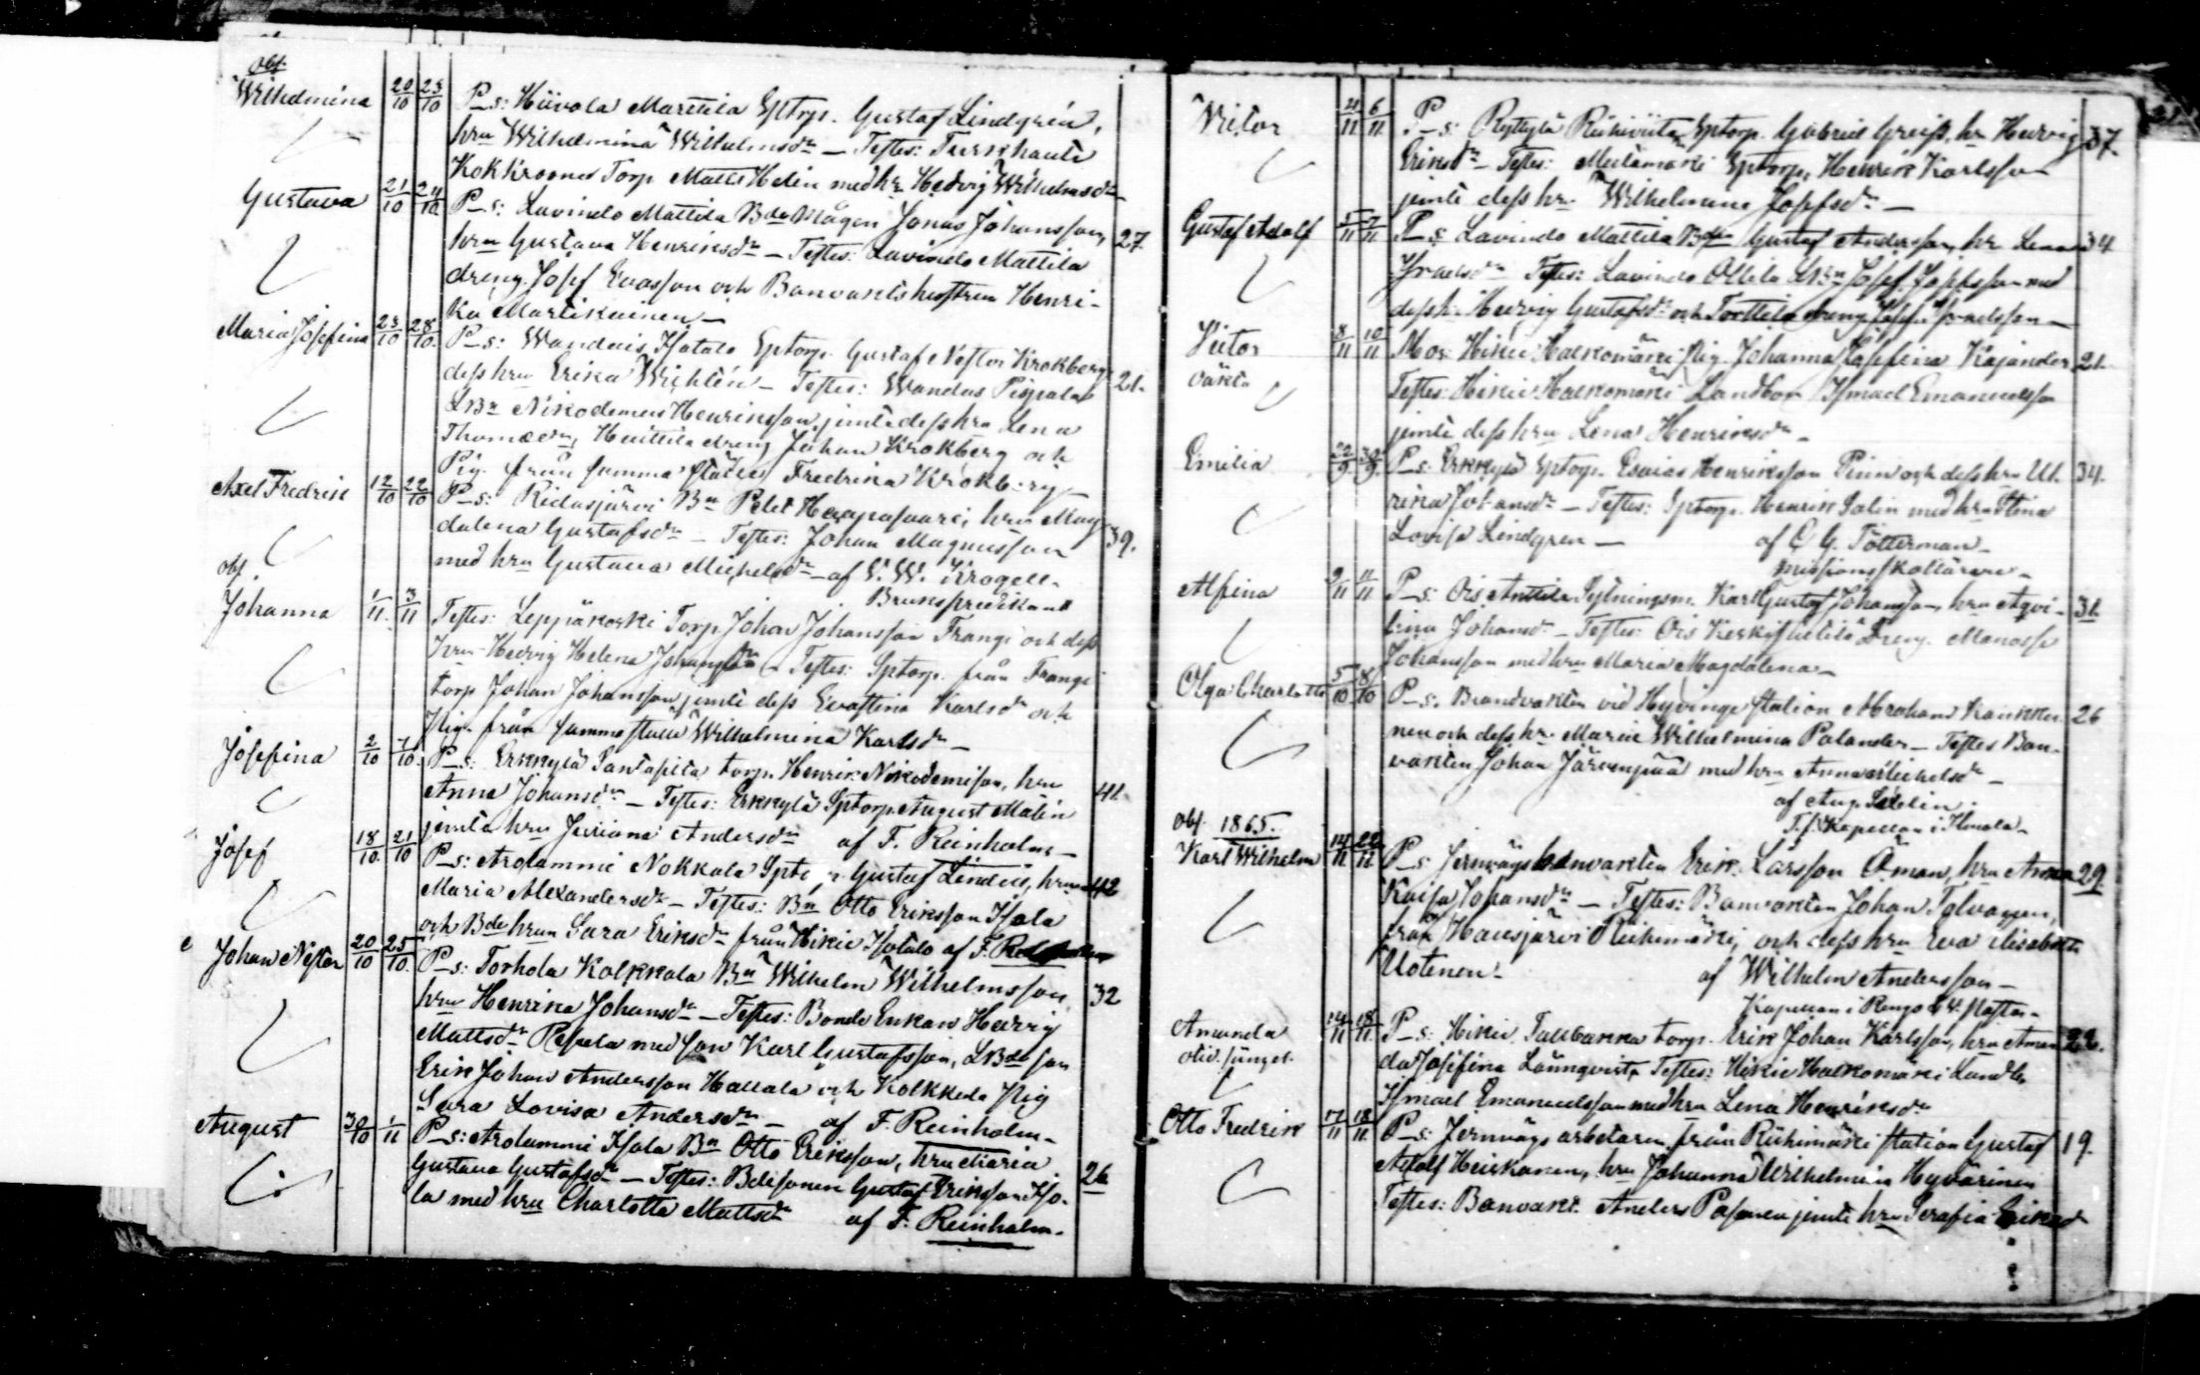 obs.
Wilhelmina 20/10 23/10 P_s: Hiivola Marttila Sptorp. Gustaf Lindgrén,
hru Wilhelmina Wilhelmsdr — Testes: Turkhauta
Torp. Matts Helin med hr Hedvig Wilhelmsdr
Gustava 21/10 24/10 P_s: Lavinto Mattila Bde Mågen Jonas Johansson, 27.
hru Gustava Henriksdr — Testes: Lavinto Mattila
dreng Josef Evasson och Banvaktshustrun Henri-
ka Martikainen —
Maria Josefina 23/10 28/10 P_s: Wandais Isotalo Sptorp. Gustaf Nestor Krokberg
dess hru Erika Wichtén — Testes: Wandas Pispala 21.
LBn Nikodemus Henriksson, jemte dess hru Lena
Thomædr, Huittila dreng Johan Krokberg och
Pig. från samma ställe Fredrika Krokberg
Axel Fredrik 12/10 22/10 P_s: Ridasjärvi Bn Petter Haapasaari, hru Mag-
dalena Gustafsdr — Testes: Johan Magnusson 39.
med hru Gustava Michelsdr — af V. W. Krogell.
Brukspredikant
obs.
Johanna 1/11 3/11 Testes: Leppäkoski Torp. Johan Johansson Frangi och dess
hru Hedvig Helena Johansdr — Testes: Sptorp. från Frangi
torp Johan Johansson jemte dess Evastina Karlsdr och
Pig. från samma ställe Wilhelmina Karlsdr —
Josefina 2/10 7/10 P_s: Erkkylä Santapilta torp. Henrik Nikodemisson, hru
Anna Johansdr — Testes: Erkkylä Sptorp. August Malén 41.
jemte hru Juliana Andersdr af F. Reinholm —
Josef 18/10 21/10 P_s: Arolammi Nokkala Gustaf Lindell, hrun 42
Maria Alexandersdr — Testes: Bn Otto Eriksson Isola
och Bde hrun Sara Eriksdr från Hikiä Isotalo af F.
Johan Nestor 20/10 25/10 P_s: Torhola Kolkkala Bn Wilhelm Wilhelmsson 32
hru Henrika Johansdr — Testes: Bonde Enkan Hedvig
Mattsdr med son Karl Gustafsson, LBde son
Erik Johan Andersson Hallala och Kolkkala Pig
Sara Lovisa Andersdr — af F. Reinholm —
August 30/10 1/11 P_s: Arolammi Isola Bn Otto Eriksson, hru Maria
Gustava Gustafsdr — Testes: Bdesonen Gustaf Eriksson Iso- 26
la med hru Charlotta Mattsdr af F. Reinholm —
Victor 4/11 6/11 P_s: Ryttylä Riihiviita Sptorp. Gabriel Greiss, hr Hedvig 37.
Eriksdr — Testes: Sptorp. Henrik Karlsson
jemte dess hr Wilhelmina Josefsdr —
Gustaf Adolf 5/11 7/11 P_s: Lavinto Mattila Bde Gustaf Andersson, hr Lena 34
Israelsdr Testes: Lavinto Ollila LBn Josef Josefsson med
dess hr Hedvig Gustafsdr och Torttila dreng Josef Israelsson —
Victor 8/11 10/11 Mor: Hikiä Halkomäki Pig. Johanna Josefina Kajander 21.
oäkta Testes: Hikiä Halkomäki Landbon Ismael Emanuelsson
jemte dess hru Lena Henriksdr —
Emilia 22/9 30/9 P_s: Erkkylä Sptorp. Esaias Henriksson Pinn och dess hru Ul- 34.
rika Johansdr — Testes: Sptorp. Henrik Salin med hru Stina
Lovisa Lindgren — af C. G. Tötterman —
missionsskollärare —
Alfina 9/11 11/11 P_s: Ois Anttila Karl Gustaf Johansson, hru Aqvi- 31.
lina Johansdr — Testes: Ois Dreng. Manasse
Johansson med hru Maria Magdalena —
Olga Charlotta 5/10 8/10 P_s: Brandvakten vid Hyvinge station Abraham Kaukku- 26
nen och dess hr Maria Wilhelmina Palander — Testes Ban-
vakten Johan Järvenpää med hru Anna Michelsdr —
af Aug.
T.f. Kapellan i
obs. 1865.
Karl Wilhelm P_s: Jernvägsbanvakten Erik Larsson Öman, hru Anna 29.
Kaisa Johansdr — Testes: Banvakten Johan Tolvanen,
från Hausjärvi Riihimäki, och dess hru Eva Elisabeth
Uotinen — af Wilhelm Andersson —
Kapellan i Rengo
Amanda 14/11 18/11 P_s: Hikiä Tallbacka torp. Erik Johan Karlsson, hru Aman- 22.
da Josefina Lönnqvist. Testes: Hikiä Halkomäki Landb.
Ismael Emanuelsson med hru Lena Henriksdr
Otto Fredrik 17/11 18/11 P_s: Jernvägsarbetaren från Riihimäki station Gustaf 19.
Adolf Heiskanen, hru Johanna Wilhelmina Hyvärinen
Testes: Banvakt. Anders Pasanen jemte hru Serafia